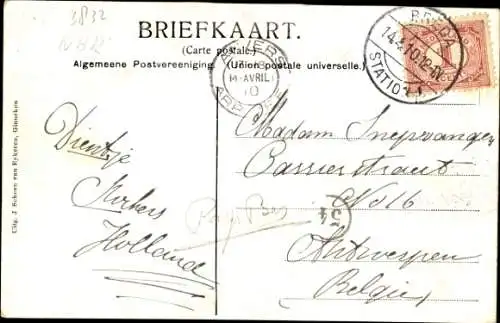 3832
BRIEFKAART.
(Carte postale.)
Algemeene Postvereeniging. (Union postale universelle.)
BREDA
14.4.10.12-
STATION
ANVERS
14 AVRIL
10
Madam Snepvangers
Carrierstraat
No 16
Antwerpen
Belgie,
Dientje
Korbers
Holland
Pays Bas
Uitg. J Schoon van Eykeren, Ginneken